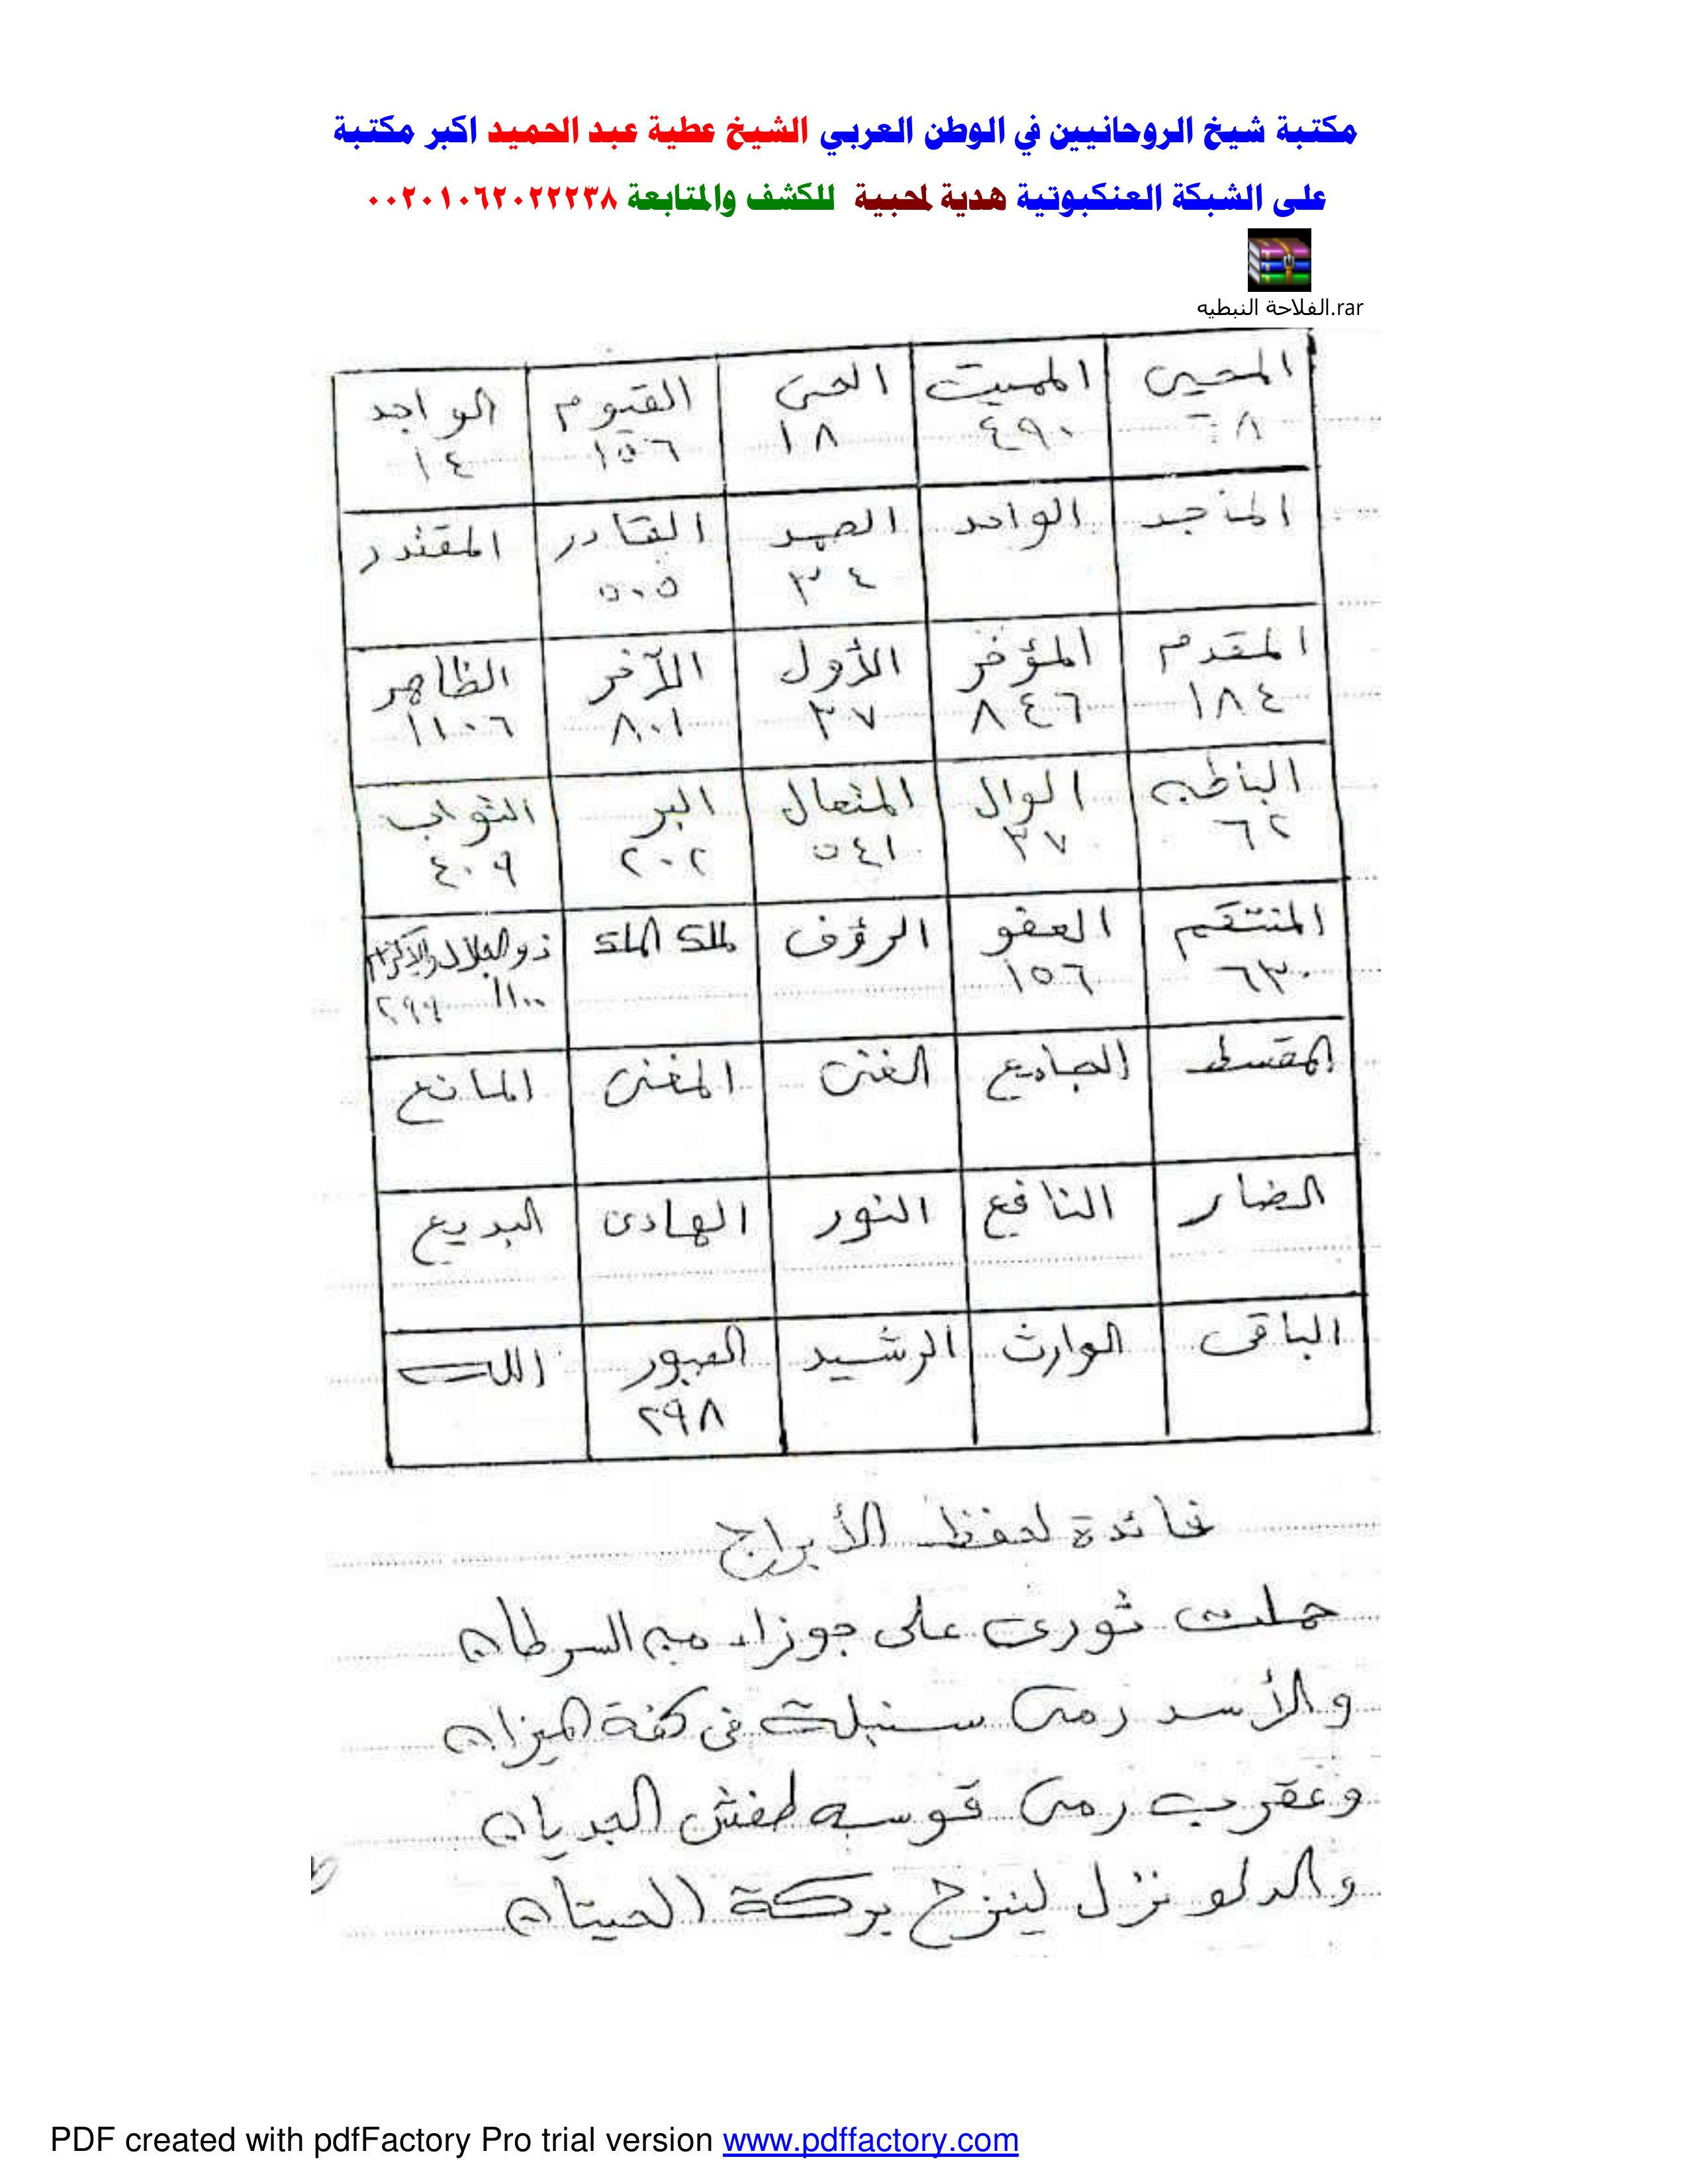 مكتبة شيخ الروحانيين في الوطن العربي الشيخ عطية عبد الحميد اكبر مكتبة
على الشبكة العنكبوتية هدية لمحبية للكشف والمتابعة ٠٠٢٠١٠٦٢٠٢٢٢٣٨
الفلاحة النبطيه.rar
المحيى المميت الحى القيوم الواجد
٦٨ ٤٩٠ ١٨ ١٥٦ ١٤
الماجد الواحد الصمد القادر المقتدر
٣٤ ٥٠٥
المقدم المؤخر الأول الآخر الظاهر
١٨٤ ٨٤٦ ٣٧ ٨٠١ ١١٠٦
الباطن الوال المتعال البر التواب
٦٢ ٣٧ ٥٤١ ٢٠٢ ٤٠٩
المنتقم العفو الرؤف ملك الملك ذو الجلال والإكرام
٦٣٠ ١٥٦ ١١٠٠ ٢٩٩
المقسط الجامع الغنى المغنى المانع
الضار النافع النور الهادى البديع
الباقى الوارث الرشيد الصبور الله
٢٩٨
فائدة لحفظ الأبراج
حملت ثورى على جوزاء من السرطان
والأسد رمى سنبلة فى كفة الميزان
وعقرب رمى قوسه طفش الجديان
والدلو نزل لينزح بركة الحيتان
PDF created with pdfFactory Pro trial version www.pdffactory.com